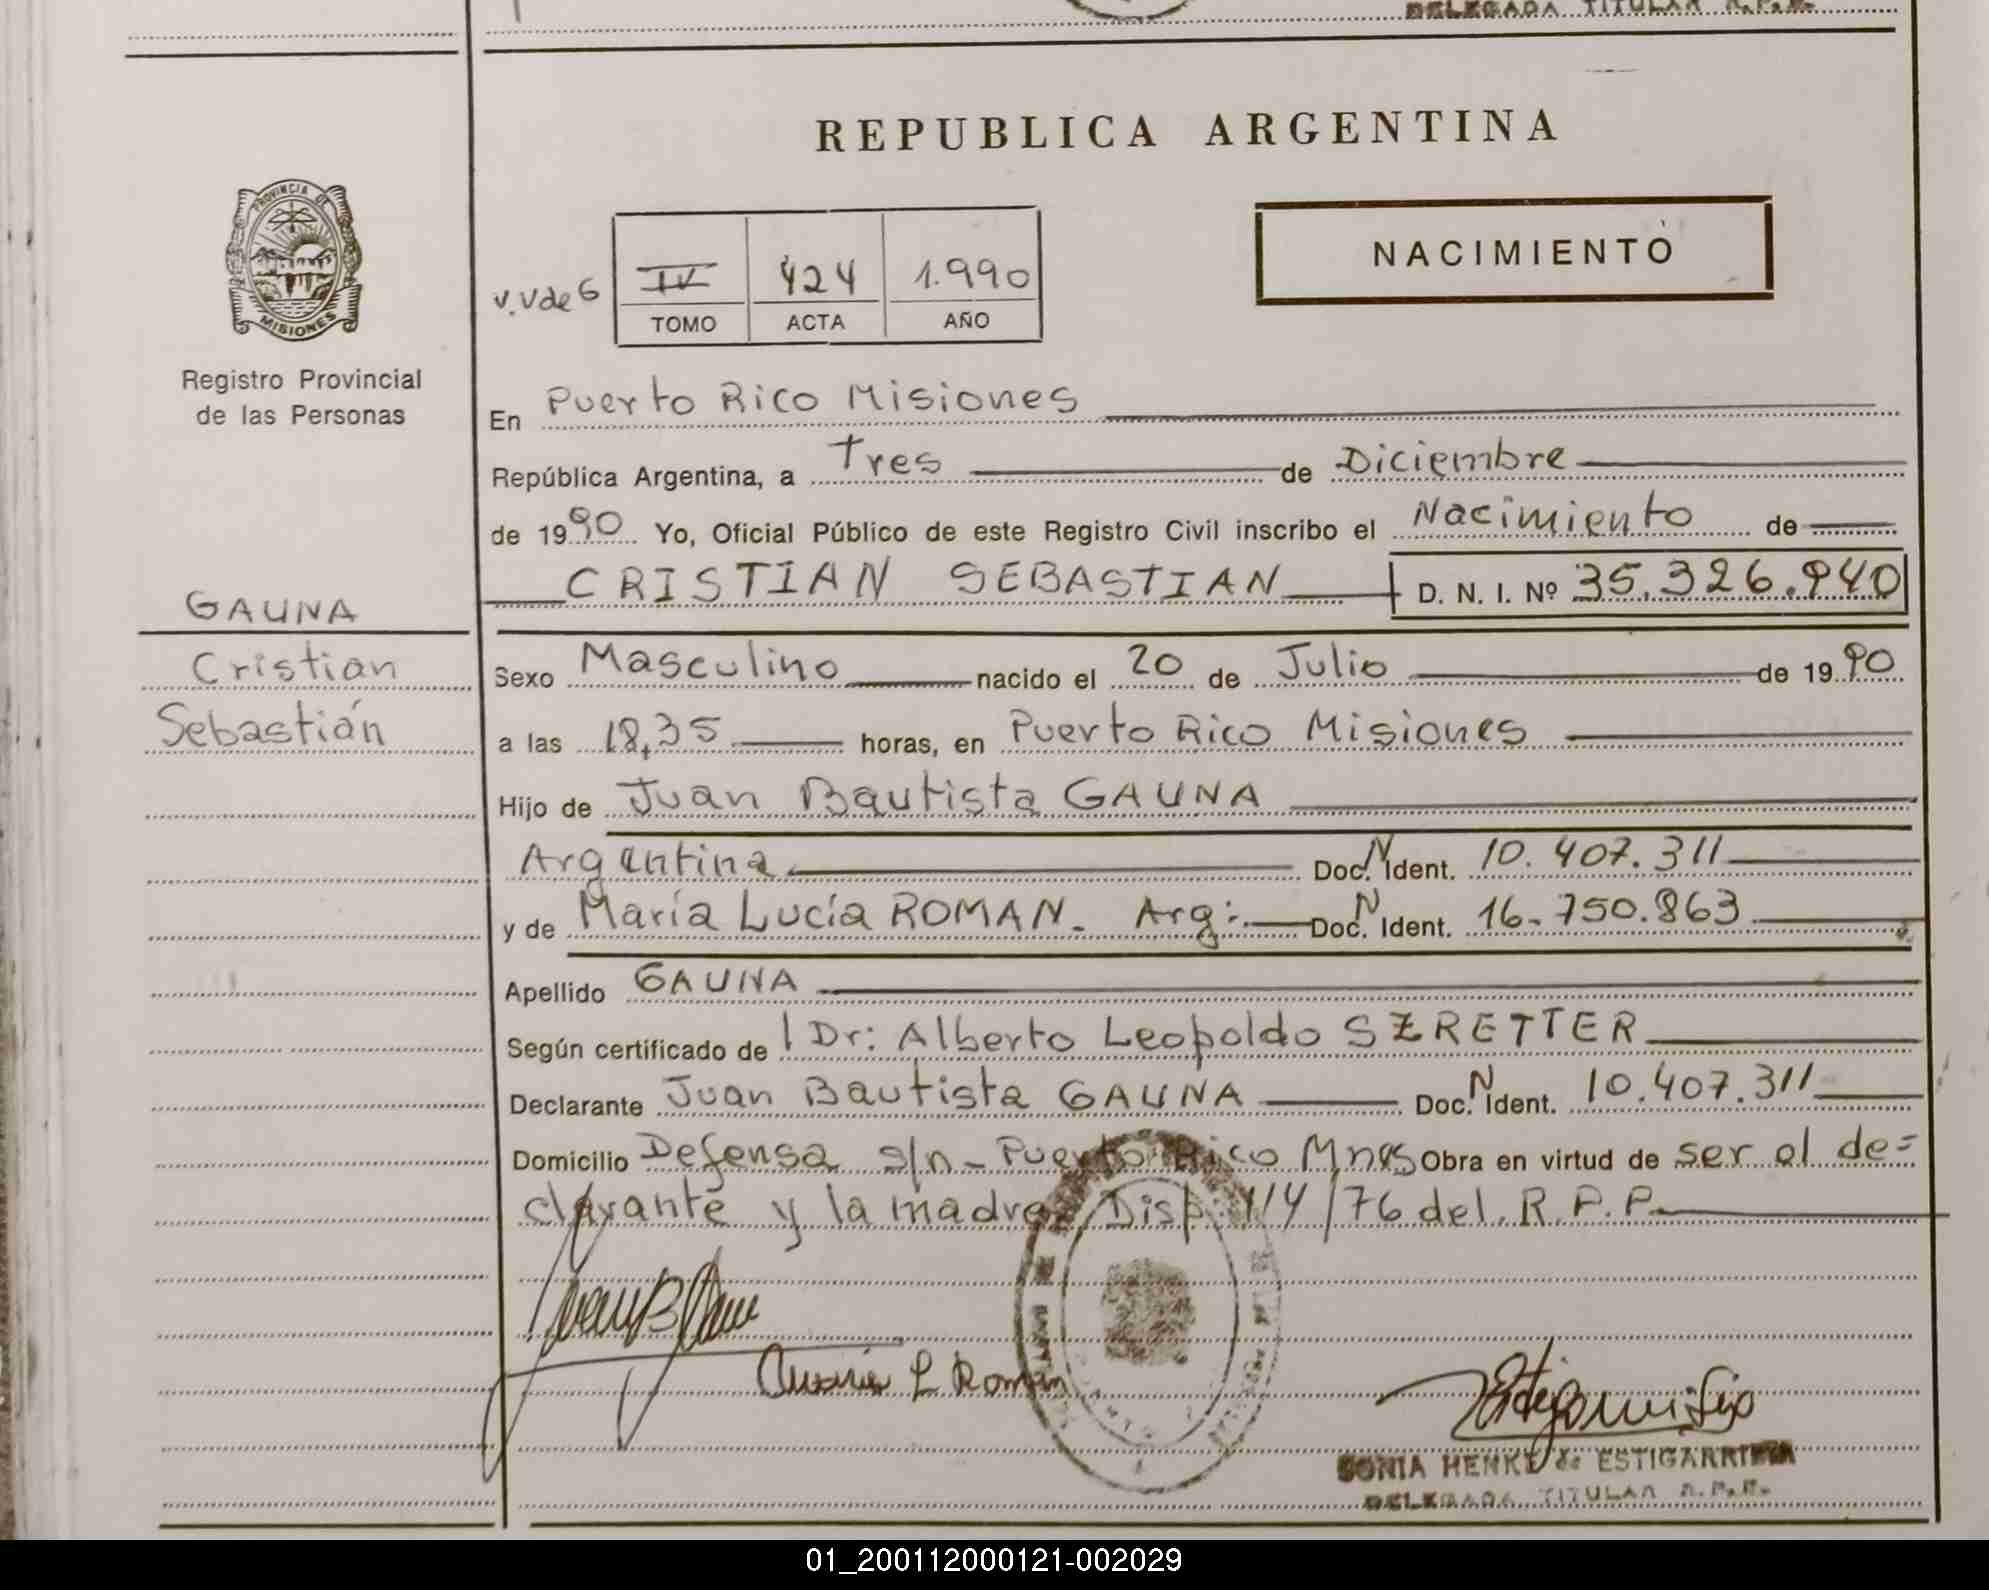 DELEGADA TITULAR R.P.P.
REPUBLICA ARGENTINA
PROVINCIA DE
MISIONES
Registro Provincial
de las Personas
NACIMIENTO
v.vde6
IV 424 1.990
TOMO ACTA AÑO
En Puerto Rico Misiones
República Argentina, a Tres de Diciembre
de 1990 Yo, Oficial Público de este Registro Civil inscribo el Nacimiento de
CRISTIAN SEBASTIAN D. N. I. Nº 35.326.940
GAUNA
Cristian
Sebastián
Sexo Masculino nacido el 20 de Julio de 1990
a las 18,35 horas, en Puerto Rico Misiones
Hijo de Juan Bautista GAUNA
Argentina Doc. N Ident. 10.407.311
y de María Lucía ROMAN. Arg: Doc. N Ident. 16.750.863
Apellido GAUNA
Según certificado de Dr: Alberto Leopoldo SZRETTER
Declarante Juan Bautista GAUNA Doc. N Ident. 10.407.311
Domicilio Defensa s/n - Puerto Rico Mnes Obra en virtud de ser el de=
clarante y la madre Disp. 114/76 del R.P.P.
Juan B
María L Román
SONIA HENKE de ESTIGARRIBIA
DELEGADA TITULAR R.P.P.
01_200112000121-002029